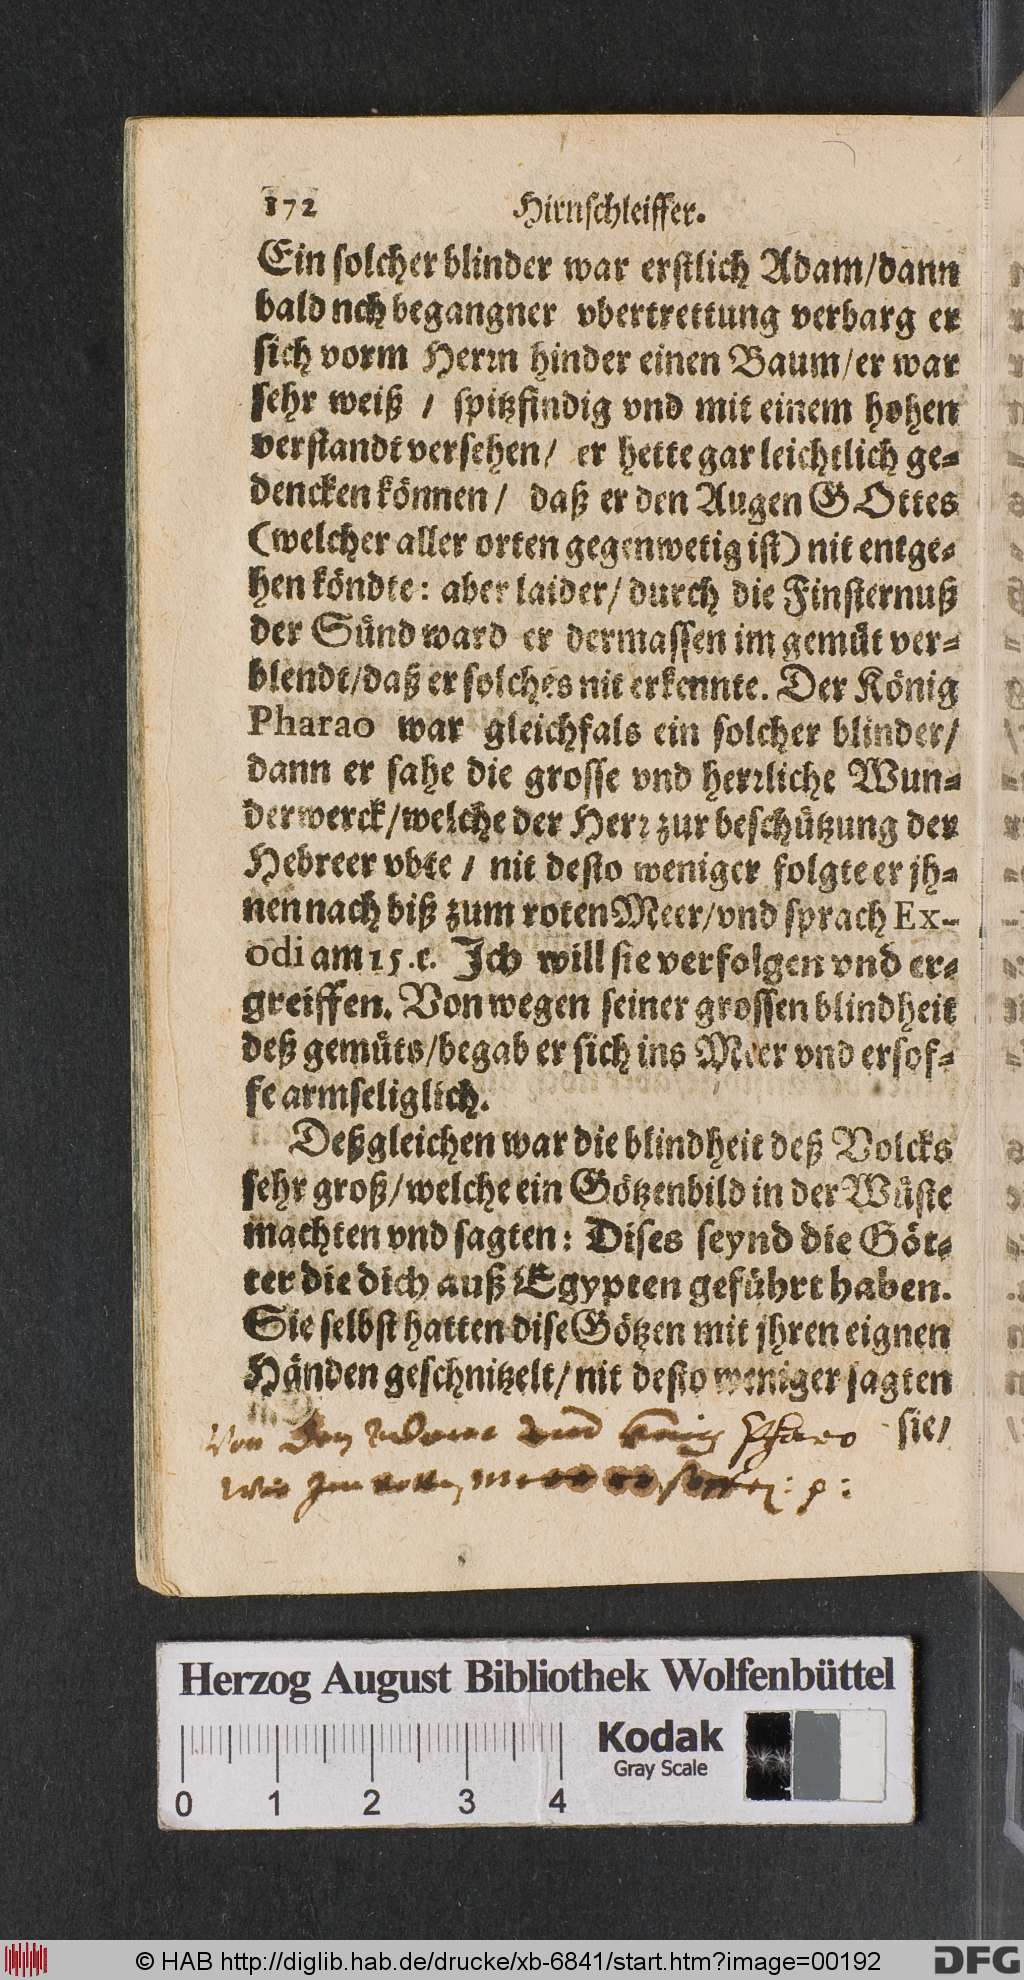 172
Hirnschleiffer.
Ein solcher blinder war erstlich Adam/dann
bald nch begangner vbertrettung verbarg er
sich vorm Herrn hinder einen Baum/er war
sehr weiß / spitzfindig vnd mit einem hohen
verstandt versehen/ er hette gar leichtlich ge-
dencken können/ daß er den Augen GOttes
(welcher aller orten gegenwetig ist) nit entge-
hen köndte: aber laider/ durch die Finsternuß
der Sünd ward er dermassen im gemüt ver-
blendt/daß er solches nit erkennte. Der König
Pharao war gleichfals ein solcher blinder/
dann er sahe die grosse vnd herrliche Wun-
derwerck/welche der Herr zur beschützung der
Hebreer vbte / nit desto weniger folgte er jh-
nen nach biß zum roten Meer/vnd sprach Ex-
odi am 15.c. Ich will sie verfolgen vnd er-
greiffen. Von wegen seiner grossen blindheit
deß gemüts/begab er sich ins Meer vnd ersof-
fe armseliglich.
Deßgleichen war die blindheit deß Volcks
sehr groß/welche ein Götzenbild in der Wüste
machten vnd sagten: Dises seynd die Göt-
ter die dich auß Egypten geführt haben.
Sie selbst hatten dise Götzen mit jhren eignen
Händen geschnitzelt/ nit desto weniger sagten
sie/
Von den Adame und König Pharo
Wie im rotten meer
Herzog August Bibliothek Wolfenbüttel
Kodak
Gray Scale
0 1 2 3 4
© HAB http://diglib.hab.de/drucke/xb-6841/start.htm?image=00192
DFG